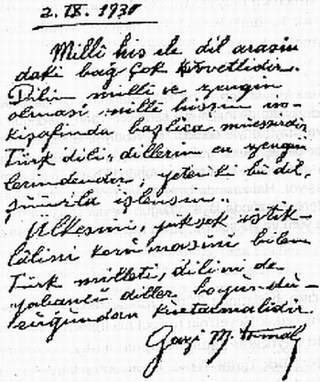 2. IX. 1930
Millî his ile dil arasın
daki bağ çok kuvvetlidir.
Dilin millî ve zengin
olması millî hissin in-
kişafında başlıca müessirdir.
Türk dili, dillerin en zengin
lerindendir yeter ki bu dil,
şuurla işlensin.
Ülkesini, yüksek istik-
lâlini korumasını bilen
Türk milleti, dilini de
yabancı diller boyundu-
ruğundan kurtarmalıdır.
Gazi M. Kemal